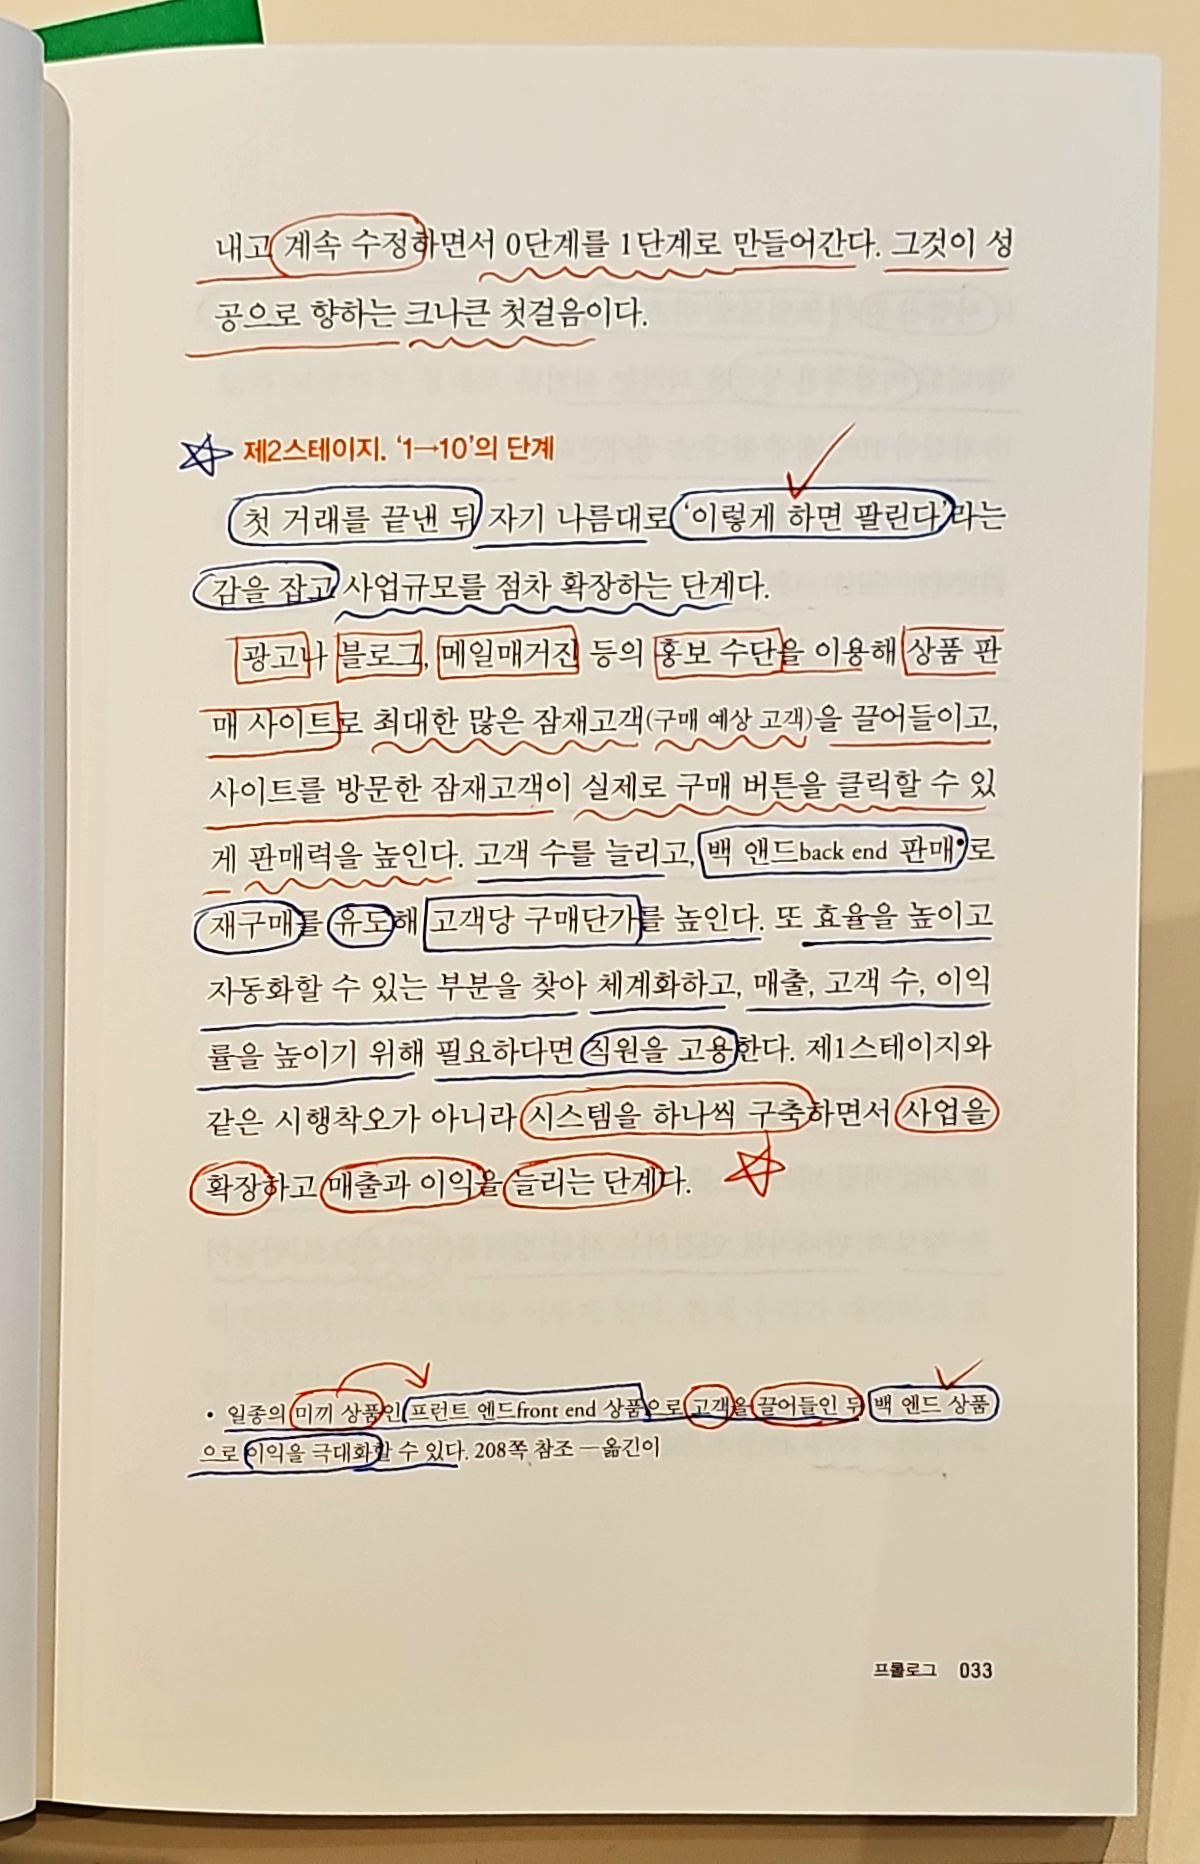 내고 계속 수정하면서 0단계를 1단계로 만들어간다. 그것이 성
공으로 향하는 크나큰 첫걸음이다.
제2스테이지. ‘1→10’의 단계
첫 거래를 끝낸 뒤 자기 나름대로 ‘이렇게 하면 팔린다’라는
감을 잡고 사업규모를 점차 확장하는 단계다.
광고나 블로그, 메일매거진 등의 홍보 수단을 이용해 상품 판
매 사이트로 최대한 많은 잠재고객(구매 예상 고객)을 끌어들이고,
사이트를 방문한 잠재고객이 실제로 구매 버튼을 클릭할 수 있
게 판매력을 높인다. 고객 수를 늘리고, 백 앤드back end 판매•로
재구매를 유도해 고객당 구매단가를 높인다. 또 효율을 높이고
자동화할 수 있는 부분을 찾아 체계화하고, 매출, 고객 수, 이익
률을 높이기 위해 필요하다면 직원을 고용한다. 제1스테이지와
같은 시행착오가 아니라 시스템을 하나씩 구축하면서 사업을
확장하고 매출과 이익을 늘리는 단계다.
• 일종의 미끼 상품인 프런트 엔드front end 상품으로 고객을 끌어들인 뒤 백 엔드 상품
으로 이익을 극대화할 수 있다. 208쪽 참조 —옮긴이
프롤로그 033